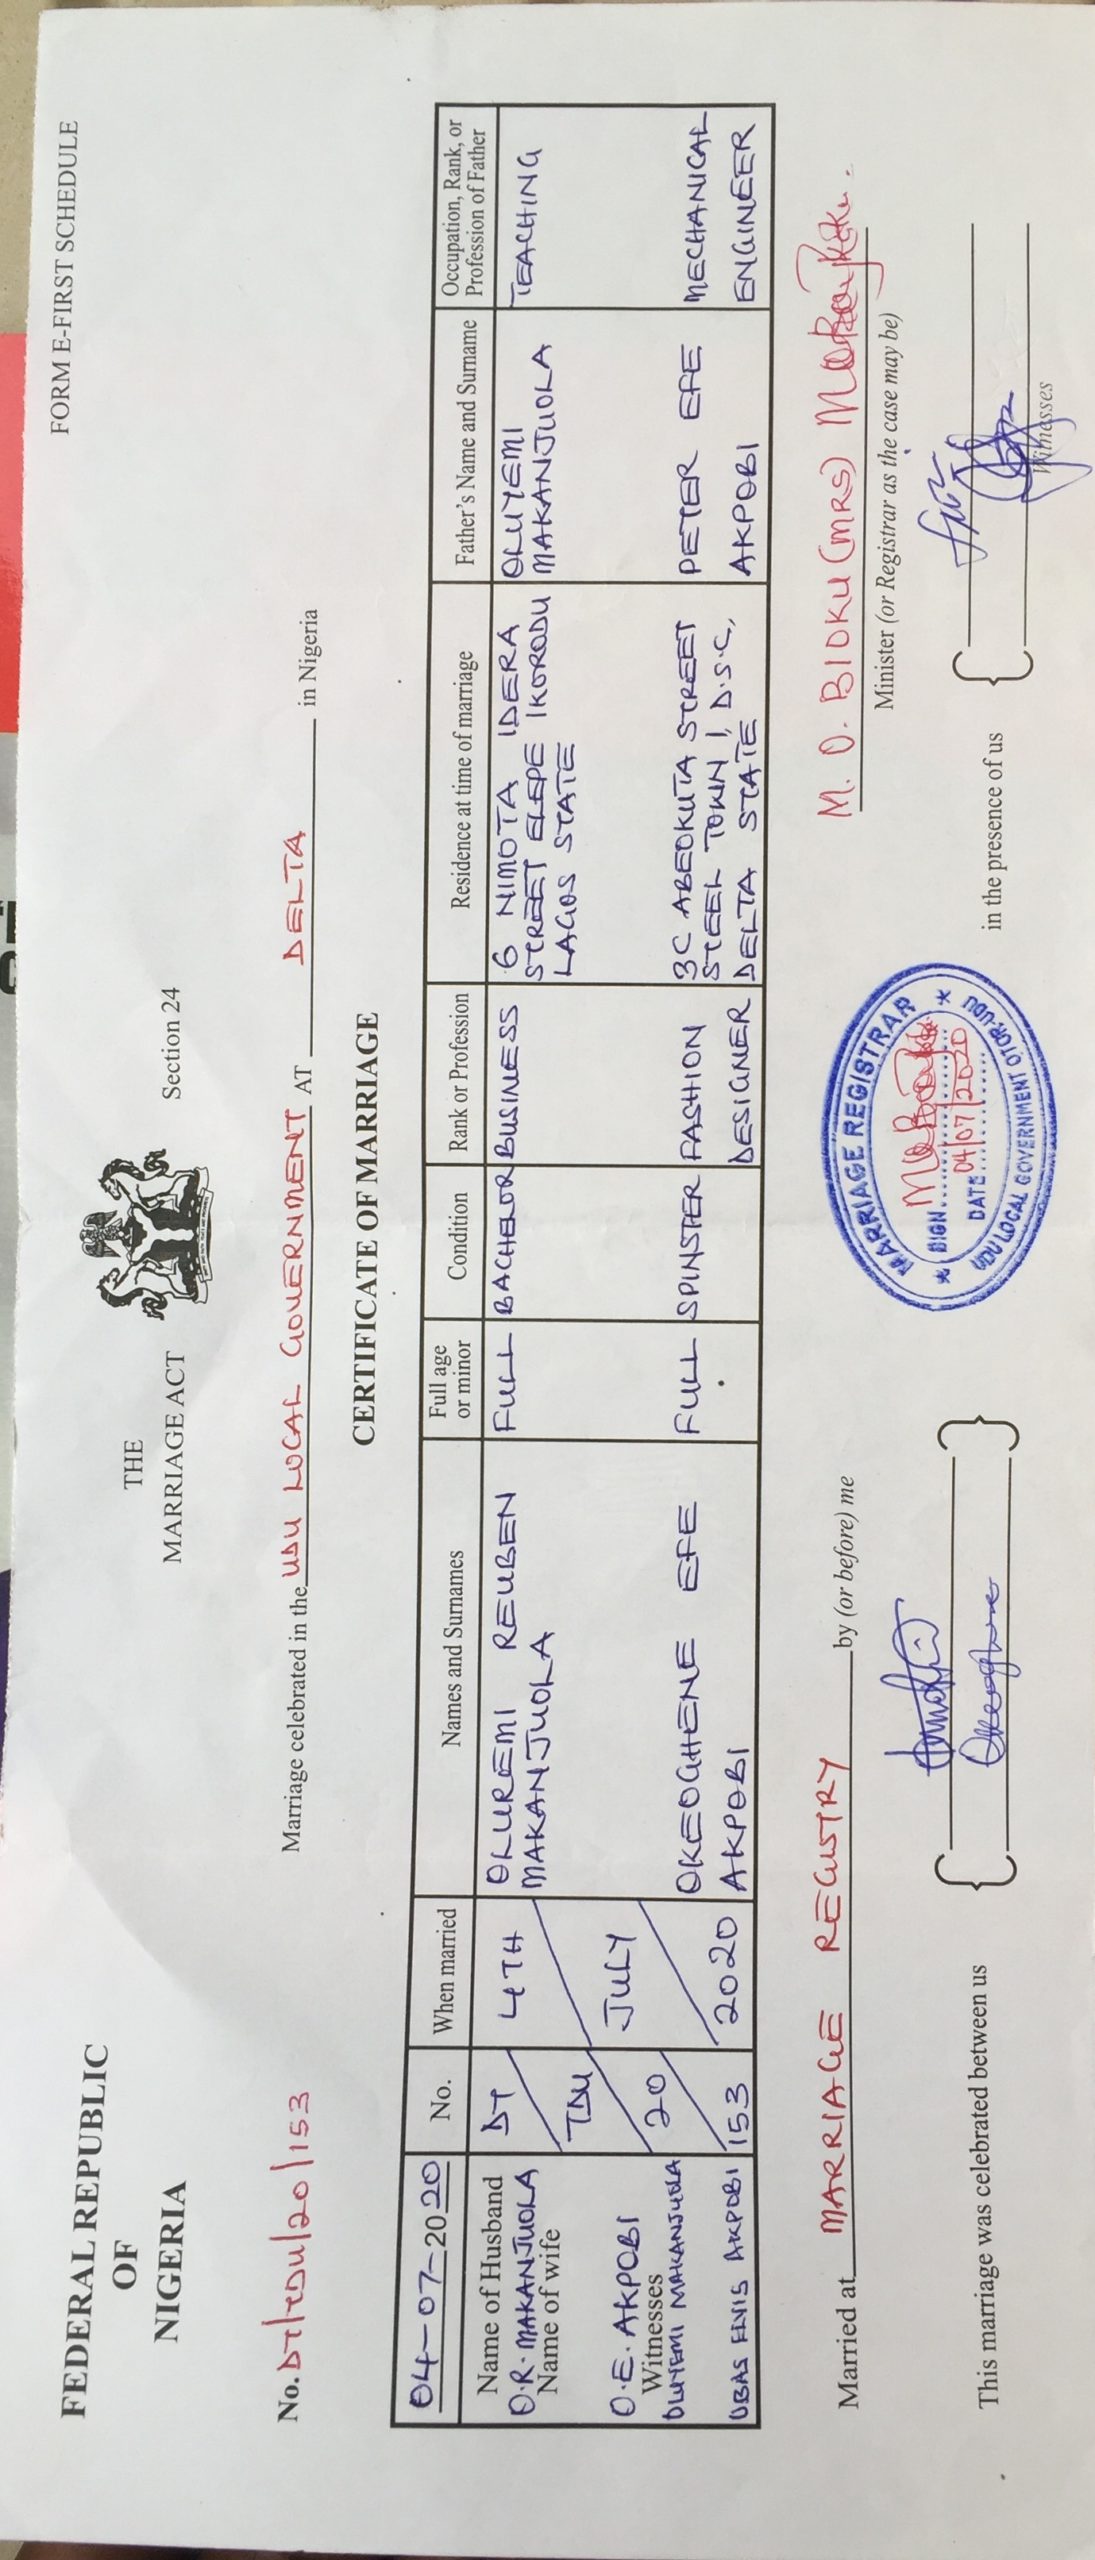 FORM E-FIRST SCHEDULE
FEDERAL REPUBLIC
OF
NIGERIA
THE
MARRIAGE ACT
Section 24
No. DT/TDU/20/153
Marriage celebrated in the UDU LOCAL GOVERNMENT AT DELTA in Nigeria
CERTIFICATE OF MARRIAGE
04-07-2020
No.
When married
Names and Surnames
Full age
or minor
Condition
Rank or Profession
Residence at time of marriage
Father's Name and Surname
Occupation, Rank, or
Profession of Father
Name of Husband
O.R. MAKANJUOLA
Name of wife
O.E. AKPOBI
Witnesses
OLUYEMI MAKANJUOLA
UBAS ELVIS AKPOBI
DT/
TDU/
20/
153
4TH/
JULY/
2020
OLUREMI REUBEN
MAKANJUOLA
FULL
BACHELOR
BUSINESS
6 NIMOTA IDERA
STREET ELEPE IKORODU
LAGOS STATE
OLUYEMI
MAKANJUOLA
TEACHING
OKEOGHENE EFE
AKPOBI
FULL
SPINSTER
FASHION
DESIGNER
3C ABEOKUTA STREET
STEEL TOWN 1, D.S.C,
DELTA STATE
PETER EFE
AKPOBI
MECHANICAL
ENGINEER
Married at MARRIAGE REGISTRY by (or before) me M. O. BIOKU (MRS)
Minister (or Registrar as the case may be)
This marriage was celebrated between us
Okeoghene
in the presence of us
Witnesses
MARRIAGE REGISTRAR
SIGN
DATE 04/07/2020
UDU LOCAL GOVERNMENT OTOR-UDU